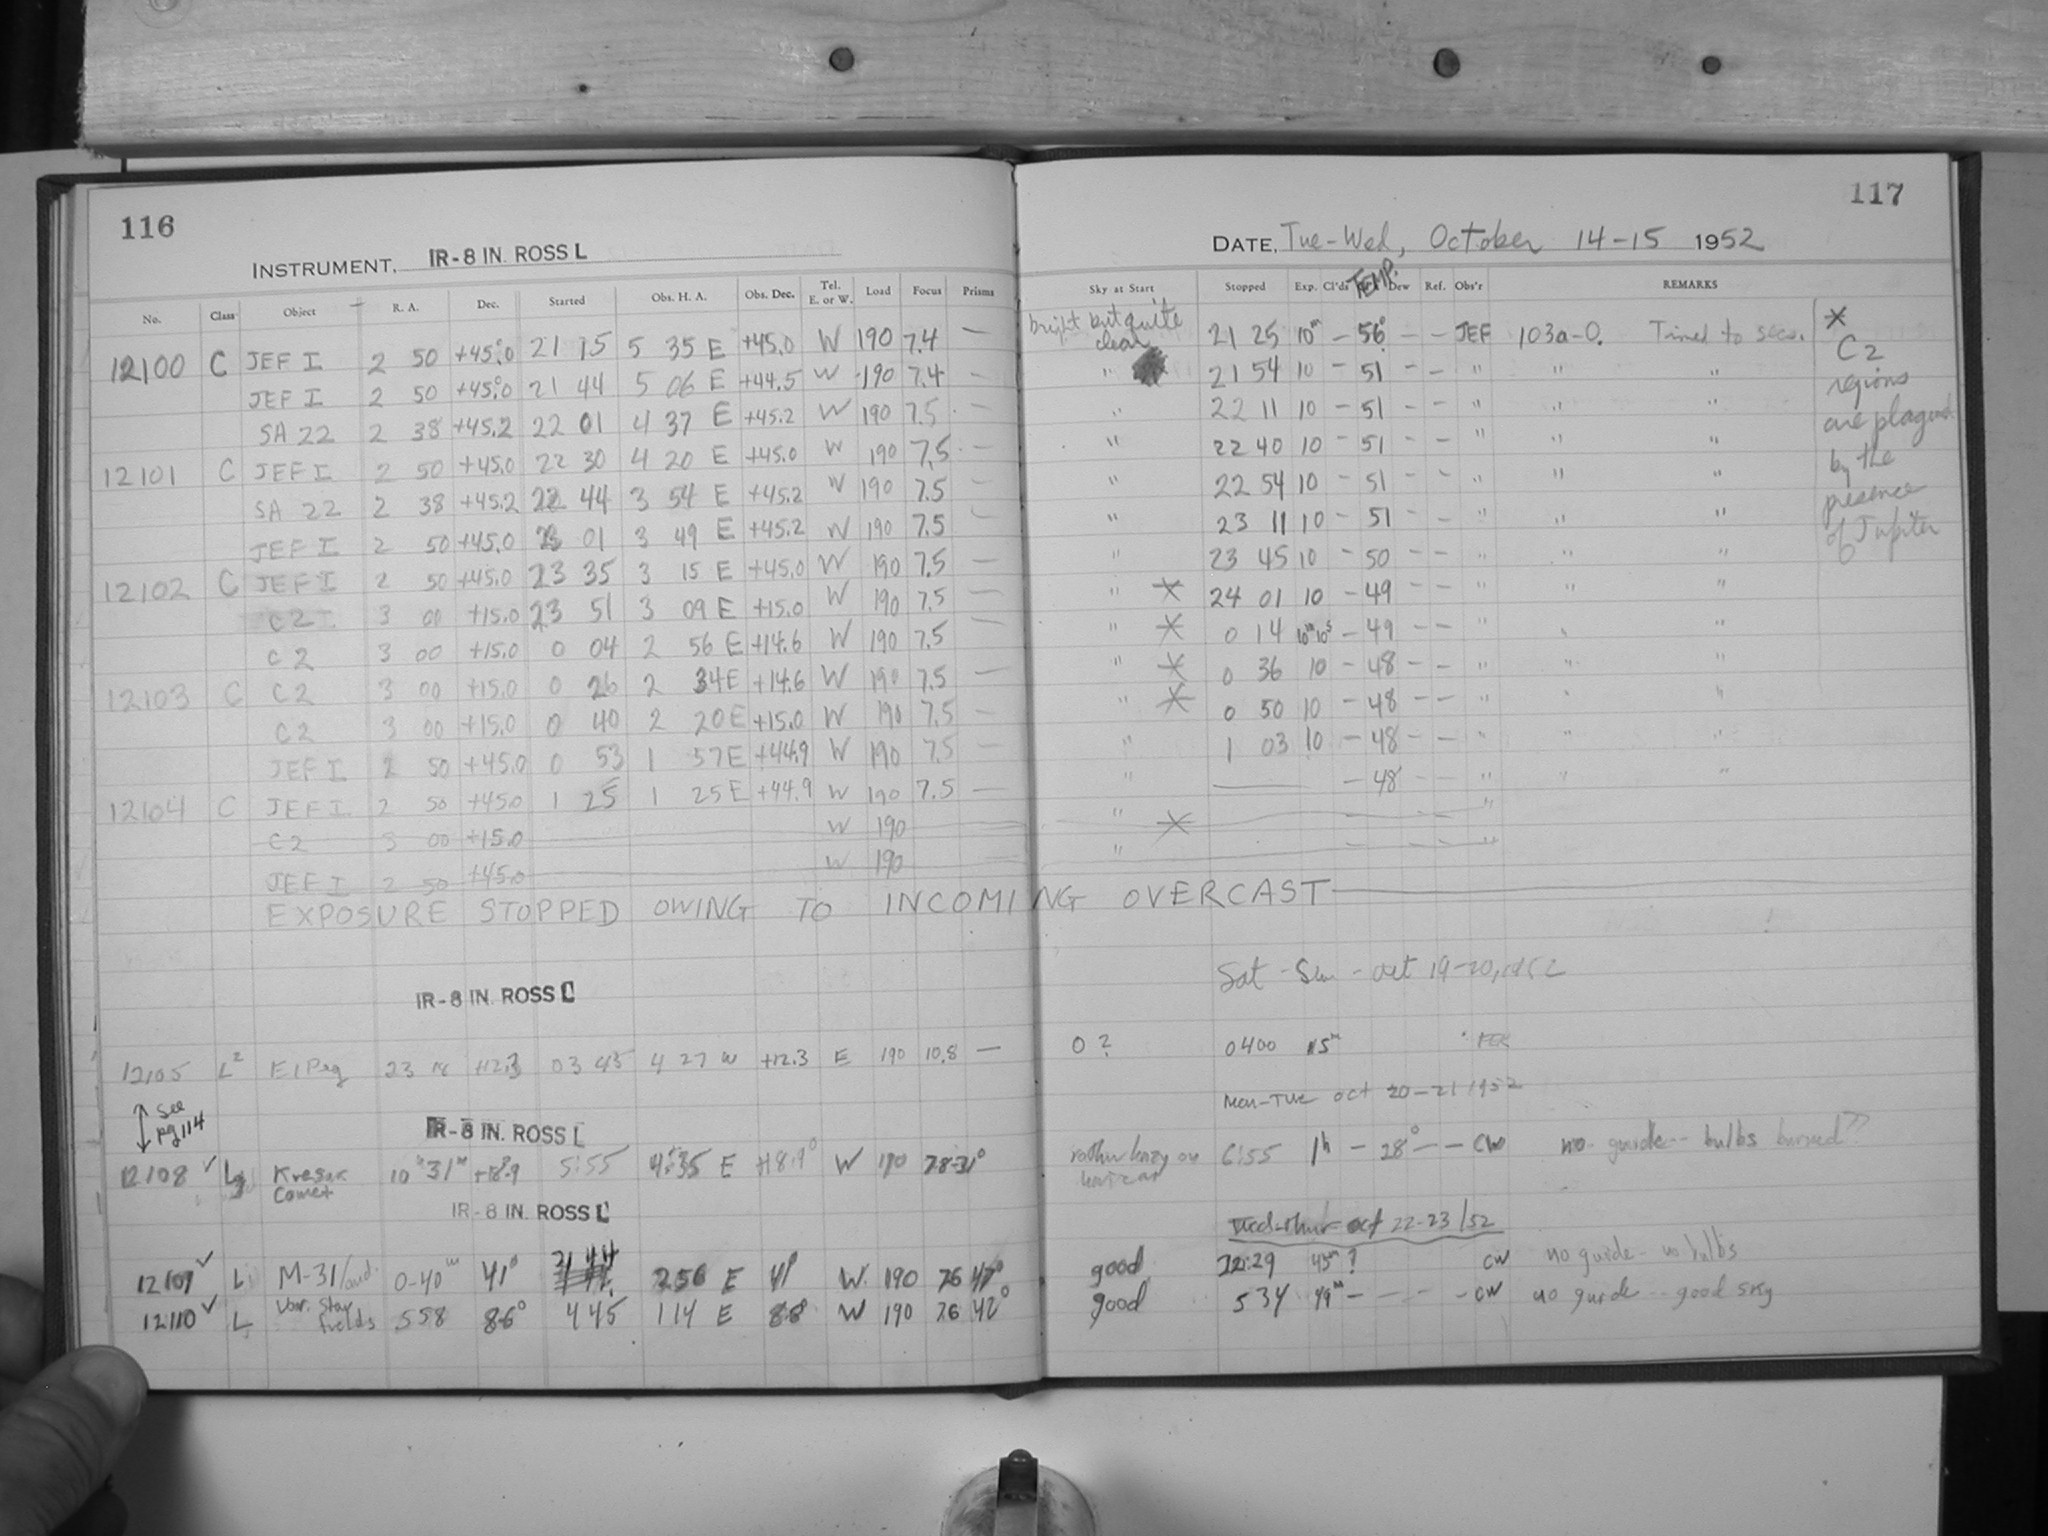 116
117
INSTRUMENT, IR-8 IN. ROSS L
DATE, Tue-Wed, October 14-15 1952
No. Class Object R. A. Dec. Started Obs. H. A. Obs. Dec. Tel. E. or W. Load Focus Prisms Sky at Start Stopped Exp. Cl'ds TEMP. Dew Ref. Obs'r REMARKS
12100 C JEF I 2 50 +45.0 21 15 5 35 E +45.0 W 190 7.4 — bright but quite clear 21 25 10m – 56° – – JEF 103a-O. Timed to secs.
JEF I 2 50 +45.0 21 44 5 06 E +44.5 W 190 7.4 — " 21 54 10 – 51 – – " " "
SA 22 2 38 +45.2 22 01 4 37 E +45.2 W 190 7.5 — " 22 11 10 – 51 – – " " "
12101 C JEF I 2 50 +45.0 22 30 4 20 E +45.0 W 190 7.5 — " 22 40 10 – 51 – – " " "
SA 22 2 38 +45.2 22 44 3 54 E +45.2 W 190 7.5 — " 22 54 10 – 51 – – " " "
JEF I 2 50 +45.0 23 01 3 49 E +45.2 W 190 7.5 — " 23 11 10 – 51 – – " " "
12102 C JEF I 2 50 +45.0 23 35 3 15 E +45.0 W 190 7.5 — " 23 45 10 – 50 – – " " "
C2 I 3 00 +15.0 23 51 3 09 E +15.0 W 190 7.5 — " * 24 01 10 – 49 – – " " "
C2 3 00 +15.0 0 04 2 56 E +14.6 W 190 7.5 — " * 0 14 10m10s – 49 – – " " "
12103 C C2 3 00 +15.0 0 26 2 34 E +14.6 W 190 7.5 — " * 0 36 10 – 48 – – " " "
C2 3 00 +15.0 0 40 2 20 E +15.0 W 190 7.5 — " * 0 50 10 – 48 – – " " "
JEF I 2 50 +45.0 0 53 1 57 E +44.9 W 190 7.5 — " 1 03 10 – 48 – – " " "
12104 C JEF I 2 50 +45.0 1 25 1 25 E +44.9 W 190 7.5 — " — – 48 – – " " "
C2 3 00 +15.0 W 190 " * – – – "
JEF I 2 50 +45.0 W 190 " – – – "
* C2
regions
are plagued
by the
presence
of Jupiter
EXPOSURE STOPPED OWING TO INCOMING OVERCAST
Sat-Sun-Oct 19-20, 1952
IR-8 IN. ROSS L
12105 L2 EI Peg 23 18 +12.3 03 45 4 27 W +12.3 E 190 10.8 — 0? 0400 15m
Mon-Tue Oct 20-21 1952
see
pg 114
IR-8 IN. ROSS L
12108 ✓ Kresak Comet 10h 31m +18.9 5:55 4:35 E +18.9° W 190 28-31° rather hazy on horizon 6:55 1h – 28° – – CW no guide – bulbs burned??
IR-8 IN. ROSS L
Wed-Thur Oct 22-23/52
12109 ✓ L M-31/and. 0-40m 41° 21 44 2 56 E 41° W 190 76 47° good 22:29 45m? CW no guide – no bulbs
12110 ✓ L Var. Star fields 558 86° 4 45 1 14 E 86° W 190 76 42° good 5 34 49m – – – – CW no guide – good sky